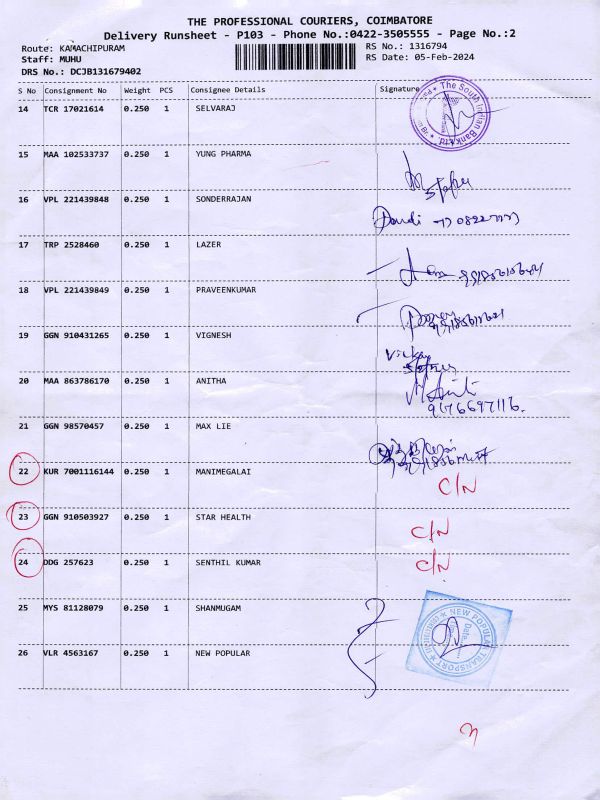 THE PROFESSIONAL COURIERS, COIMBATORE
Delivery Runsheet - P103 - Phone No.:0422-3505555 - Page No.:2
Route: KAMACHIPURAM RS No.: 1316794
Staff: MUHU RS Date: 05-Feb-2024
DRS No.: DCJB131679402
S No Consignment No Weight PCS Consignee Details Signature
14 TCR 17021614 0.250 1 SELVARAJ
The South Indian Bank Ltd.
15 MAA 102533737 0.250 1 YUNG PHARMA
16 VPL 221439848 0.250 1 SONDERRAJAN
17 TRP 2528460 0.250 1 LAZER
18 VPL 221439849 0.250 1 PRAVEENKUMAR
19 GGN 910431265 0.250 1 VIGNESH
20 MAA 863786170 0.250 1 ANITHA
9176697116.
21 GGN 98570457 0.250 1 MAX LIE
22 KUR 7001116144 0.250 1 MANIMEGALAI C/N
23 GGN 910503927 0.250 1 STAR HEALTH C/N
24 DDG 257623 0.250 1 SENTHIL KUMAR C/N
25 MYS 81128079 0.250 1 SHANMUGAM
NEW POPULAR TRANSPORT
Date
26 VLR 4563167 0.250 1 NEW POPULAR